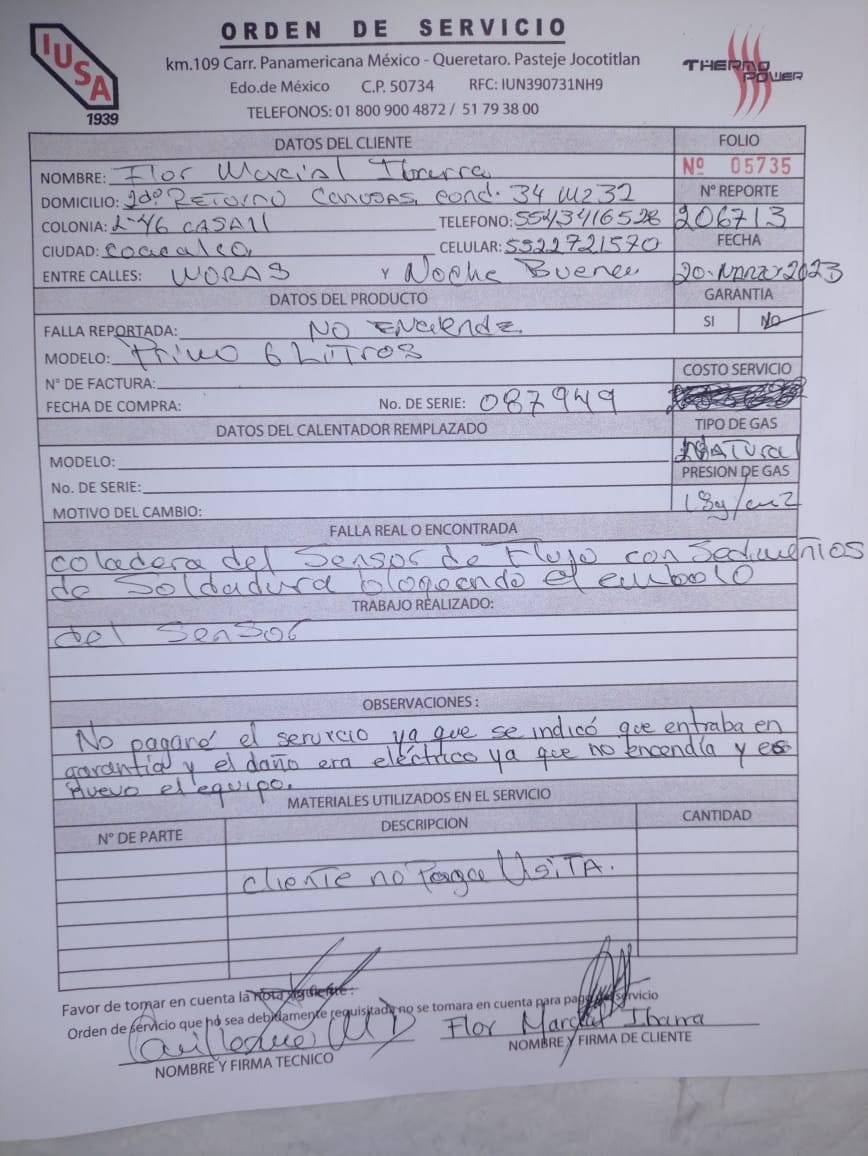 ORDEN DE SERVICIO
IUSA
1939
km.109 Carr. Panamericana México - Queretaro. Pasteje Jocotitlan
Edo.de México C.P. 50734 RFC: IUN390731NH9
TELEFONOS: 01 800 900 4872 / 51 79 38 00
THERMO POWER
DATOS DEL CLIENTE FOLIO
NOMBRE: Flor Marcial Ibarra Nº 05735
DOMICILIO: 2do. RETORNO Canosas, cond. 34 mz 32 N° REPORTE
COLONIA: L-46 CASA 11 TELEFONO: 5543416528 206713
CIUDAD: coacalco, CELULAR: 5522721570 FECHA
ENTRE CALLES: Y Noche Buena 20. Marzo 2023
DATOS DEL PRODUCTO GARANTIA
FALLA REPORTADA: NO Enciende. SI No
MODELO: 6 LITROS
N° DE FACTURA: COSTO SERVICIO
FECHA DE COMPRA: No. DE SERIE: 087949
DATOS DEL CALENTADOR REMPLAZADO TIPO DE GAS
MODELO: NATural
No. DE SERIE: PRESION DE GAS
MOTIVO DEL CAMBIO: 18g/cm2
FALLA REAL O ENCONTRADA
coladera del Sensor de Flujo con Sedimentos
de Soldadura bloqueando el embolo
TRABAJO REALIZADO:
del Sensor
OBSERVACIONES:
No pagaré el servicio ya que se indicó que entraba en
garantía y el daño era eléctrico ya que no encendía y es
nuevo el equipo.
MATERIALES UTILIZADOS EN EL SERVICIO
N° DE PARTE DESCRIPCION CANTIDAD
cliente no Paga VisiTA.
Favor de tomar en cuenta la nota siguiente:
Orden de servicio que no sea debidamente requisitado no se tomara en cuenta para pago de servicio
Flor Marcial Ibarra
NOMBRE Y FIRMA TECNICO NOMBRE Y FIRMA DE CLIENTE